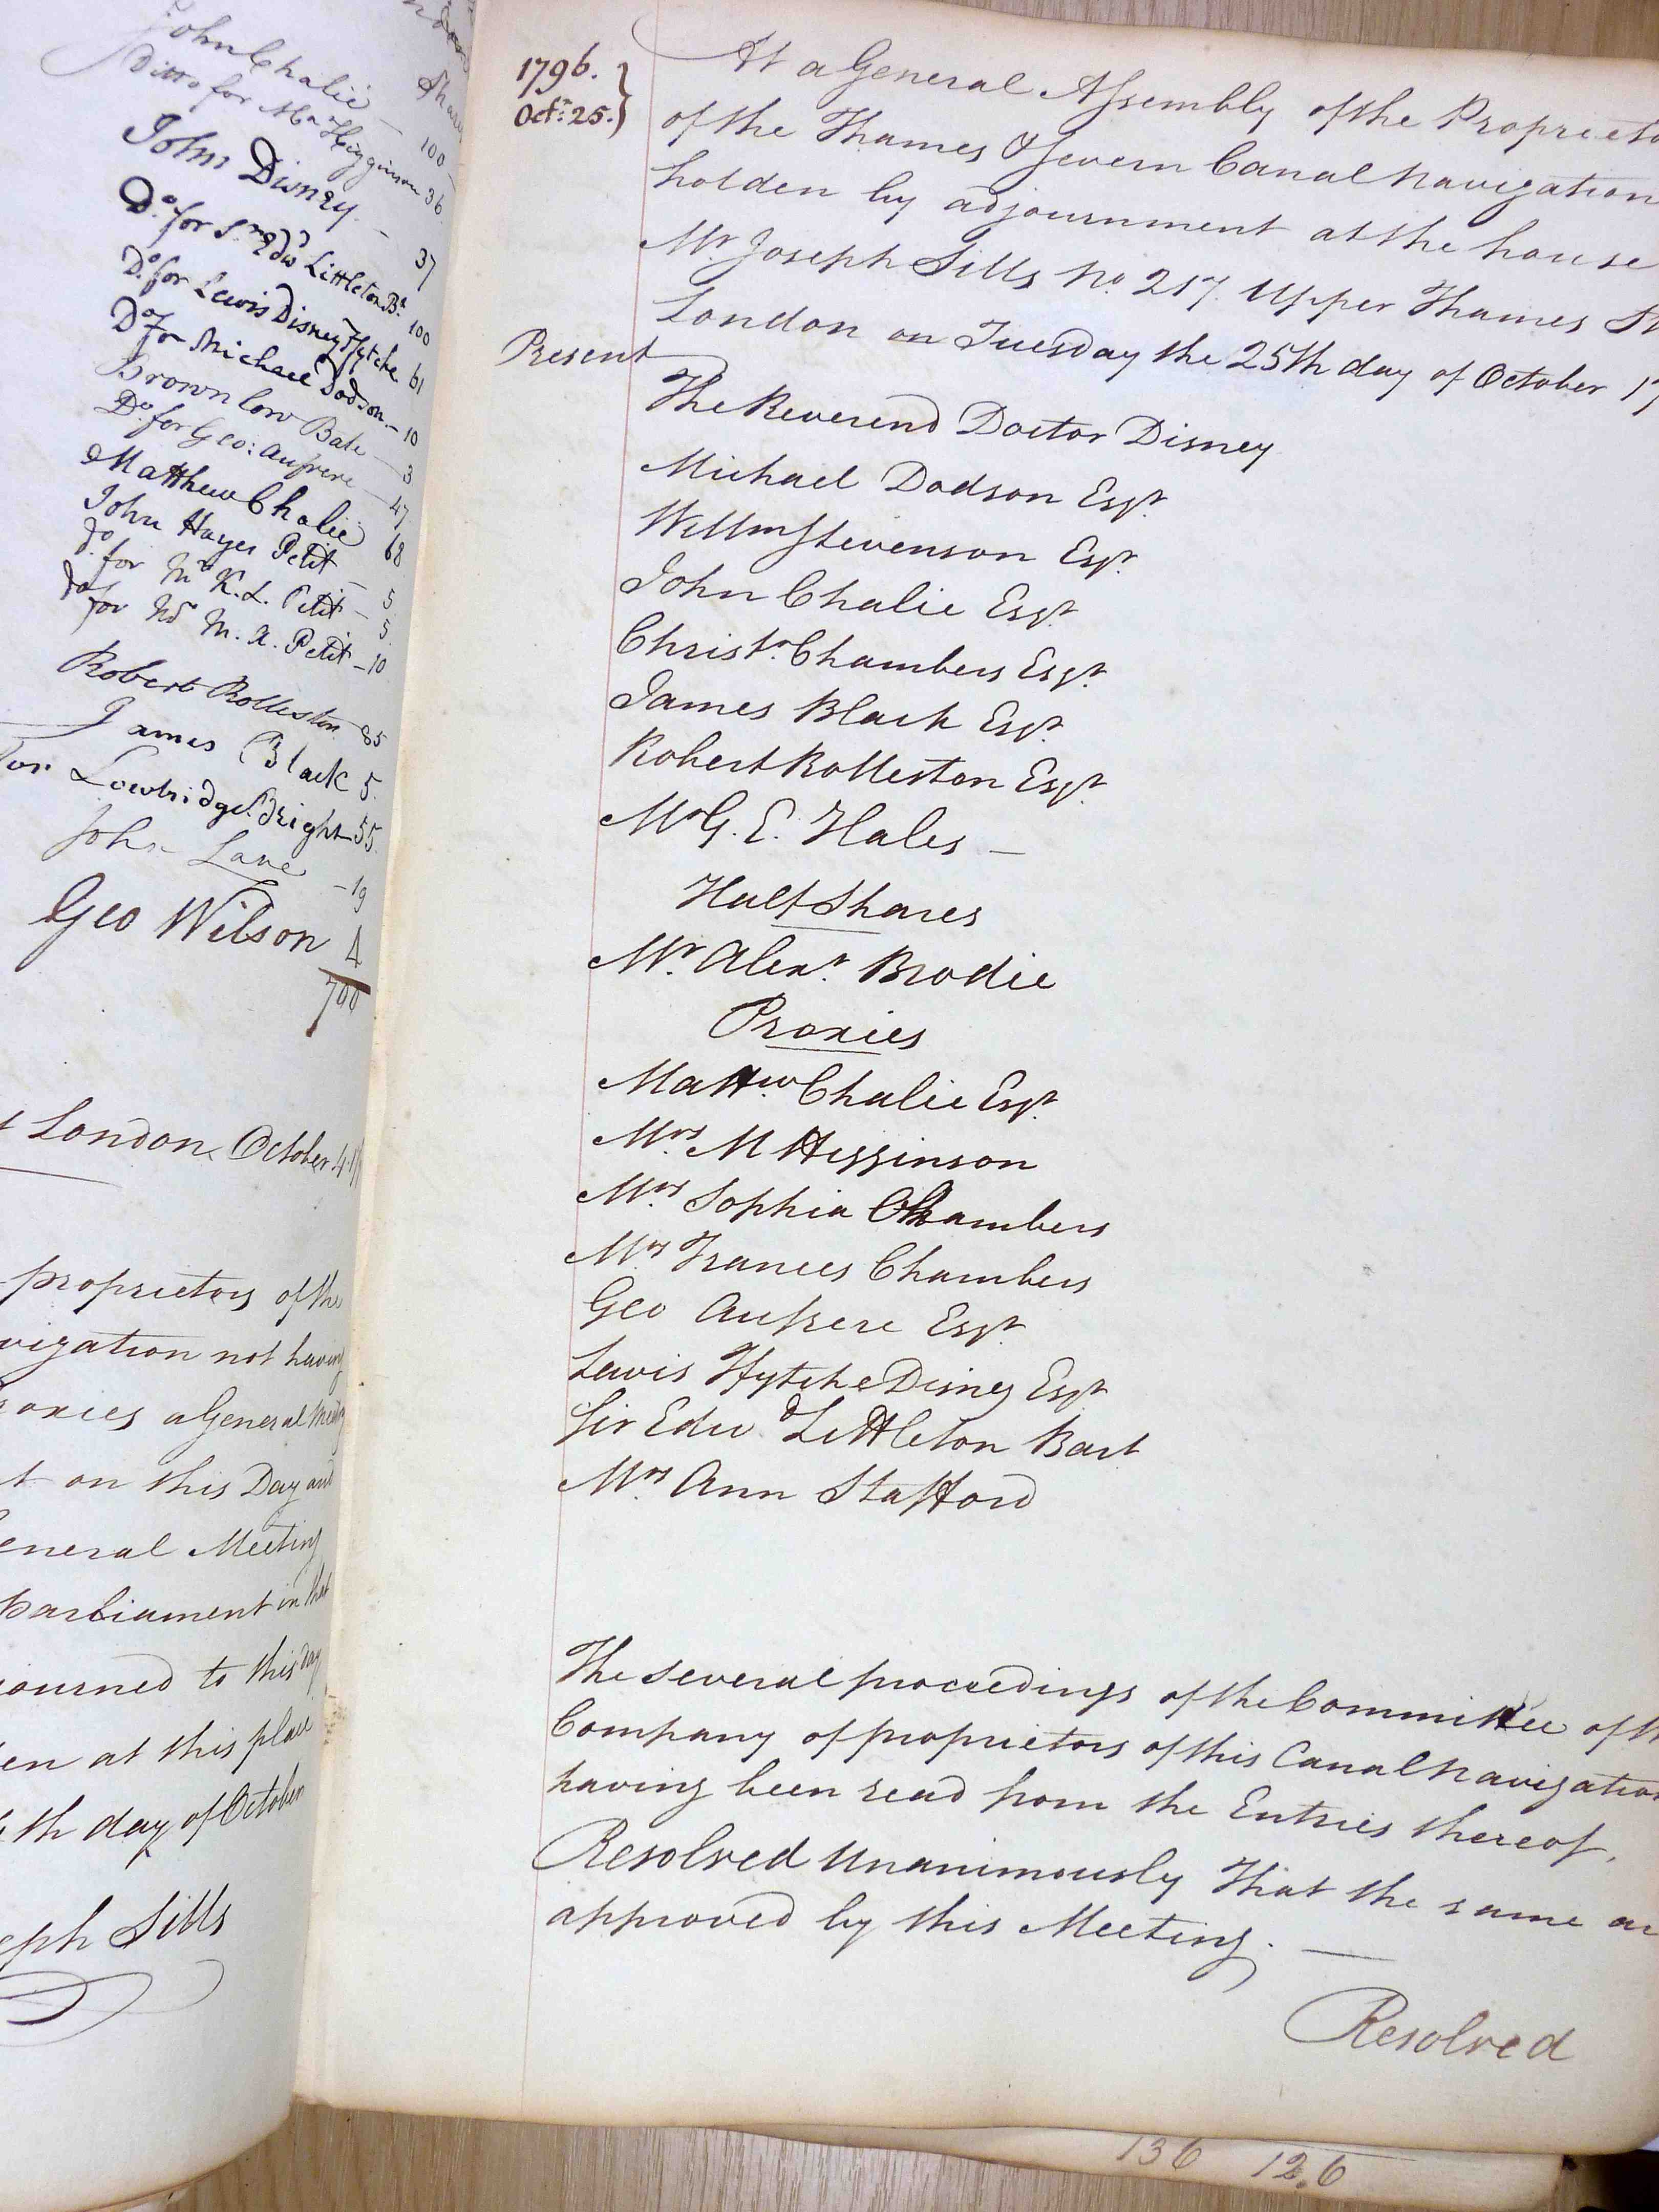 Shar
John Chalié — 100
Ditto for Mrs Higginson 36
John Disney — 37
Do. for Sr. Edwd Littleton Bt. 100
Do. for Lewis Disney Ffytche 61
Do for Michael Dodson — 10
Brownlow Bate — 3
Do. for Geo: Aufrere — 47
Matthew Chalié 68
John Hayes Petit — 5
do. for Mr K. L. Petit — 5
do for Ms M. A. Petit — 10
Robert Rolleston 85
James Black 5
for Lowbridge Bright — 55
John Lane — 19
Geo Wilson 4
700
t London October 4th
proprietors of the
vigation not having
roxies a General Meeting
t on this Day and
eneral Meeting
Parliament in that
ourned to this day
en at this place
th day of October
eph Sills
1796.
Octr. 25.
At a General Assembly of the Proprieto
of the Thames & Severn Canal Navigation
holden by adjournment at the house
Mr. Joseph Sills No. 217 Upper Thames St
London on Tuesday the 25th day of October 17
Present
The Reverend Doctor Disney
Michael Dodson Esqr.
Willm Stevenson Esqr.
John Chalie Esqr.
Christr. Chambers Esqr.
James Black Esqr.
Robert Rolleston Esqr.
Mr G. E. Hales —
Half Shares
Mr. Alexr. Brodie
Proxies
Mattw. Chalie Esqr.
Mrs. M Higginson
Mrs. Sophia Chambers
Mrs. Frances Chambers
Geo Aufrere Esqr.
Lewis Ffytche Disney Esqr
Sir Edwd. Littleton Bart
Mrs. Ann Stafford
The several proceedings of the Committee of th
Company of proprietors of this Canal Navigation
having been read from the Entries thereof,
Resolved Unanimously That the same ar
approved by this Meeting. —
Resolved
136 12.6